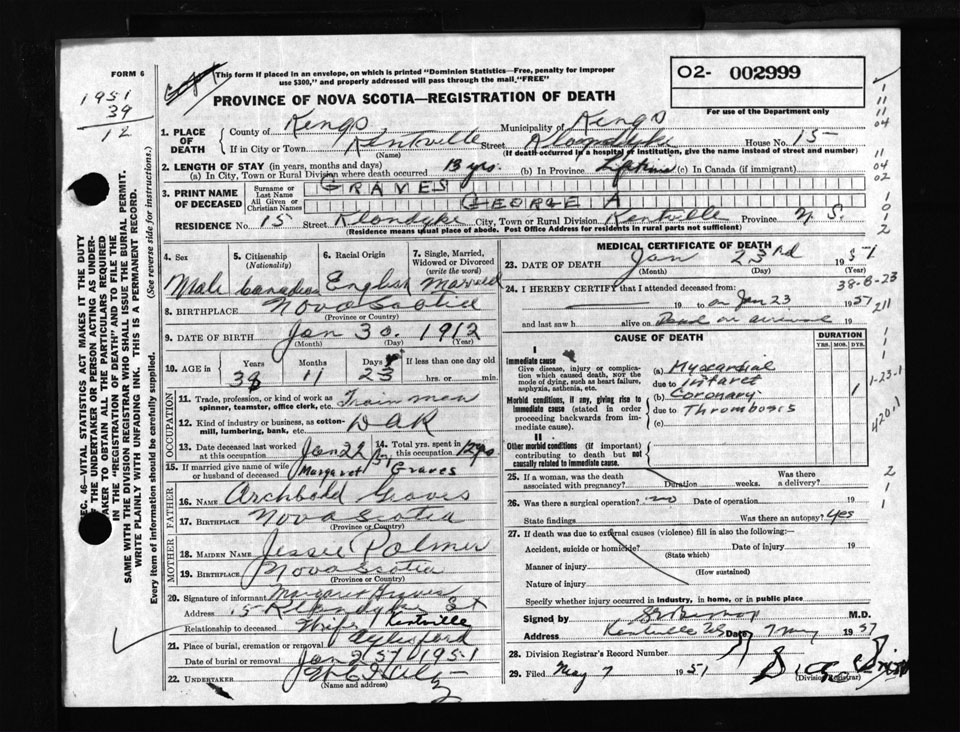 FORM 6
Copy
This form if placed in an envelope, on which is printed "Dominion Statistics—Free, penalty for improper
use $300," and properly addressed will pass through the mail, "FREE"
PROVINCE OF NOVA SCOTIA—REGISTRATION OF DEATH
02- 002999
For use of the Department only
1951
39
12
1. PLACE OF DEATH
County of Kings Municipality of Kings
If in City or Town Kentville Street Klondyke House No. 15
(Name) (If death occurred in a hospital or institution, give the name instead of street and number)
2. LENGTH OF STAY (in years, months and days)
(a) In City, Town or Rural Division where death occurred 13 yrs. (b) In Province Lifetime (c) In Canada (if immigrant)
3. PRINT NAME OF DECEASED
Surname or Last Name GRAVES
All Given or Christian Names GEORGE A
RESIDENCE No. 15 Street Klondyke City, Town or Rural Division Kentville Province N. S.
(Residence means usual place of abode. Post Office Address for residents in rural parts not sufficient)
4. Sex
Male
5. Citizenship (Nationality)
Canadian
6. Racial Origin
English
7. Single, Married, Widowed or Divorced (write the word)
Married
8. BIRTHPLACE Nova Scotia
(Province or Country)
9. DATE OF BIRTH Jan 30. 1912
(Month) (Day) (Year)
10. AGE in Years Months Days If less than one day old
38 11 23 hrs. or min.
OCCUPATION
11. Trade, profession, or kind of work as spinner, teamster, office clerk, etc. Trainman
12. Kind of industry or business, as cotton-mill, lumbering, bank, etc. DAR
13. Date deceased last worked at this occupation Jan 22/51
14. Total yrs. spent in this occupation 12 yrs
15. If married give name of wife or husband of deceased Margaret Graves
FATHER
16. NAME Archbold Graves
17. BIRTHPLACE Nova Scotia
(Province or Country)
MOTHER
18. MAIDEN NAME Jessie Palmer
19. BIRTHPLACE Nova Scotia
(Province or Country)
20. Signature of informant Margaret Graves
Address 15 Klondyke St
Relationship to deceased Wife Kentville
21. Place of burial, cremation or removal Aylesford
Date of burial or removal Jan 25 1951
22. UNDERTAKER
(Name and address)
SEC. 46—VITAL STATISTICS ACT MAKES IT THE DUTY
OF THE UNDERTAKER OR PERSON ACTING AS UNDER-
TAKER TO OBTAIN ALL THE PARTICULARS REQUIRED
IN THE "REGISTRATION OF DEATH" AND TO FILE THE
SAME WITH THE DIVISION REGISTRAR WHO SHALL ISSUE THE BURIAL PERMIT.
WRITE PLAINLY WITH UNFADING INK. THIS IS A PERMANENT RECORD.
Every item of information should be carefully supplied. (See reverse side for instructions.)
MEDICAL CERTIFICATE OF DEATH
23. DATE OF DEATH Jan 23rd 1951
(Month) (Day) (Year)
38-8-23
24. I HEREBY CERTIFY that I attended deceased from:
19 to on Jan 23 1951
and last saw h alive on Dead on arrival 19
CAUSE OF DEATH
DURATION
YRS. MOS. DYS.
I
Immediate cause
Give disease, injury or complication which caused death, NOT the mode of dying, such as heart failure, asphyxia, asthenia, etc.
(a) Myocardial
due to Infarct
Morbid conditions, if any, giving rise to immediate cause (stated in order proceeding backwards from immediate cause).
(b) Coronary 1
due to Thrombosis
(c)
II
Other morbid conditions (if important) contributing to death but not causally related to immediate cause.
1-23-1
420.1
25. If a woman, was the death associated with pregnancy? Duration weeks. Was there a delivery?
26. Was there a surgical operation? no Date of operation 19
State findings Was there an autopsy? yes
27. If death was due to external causes (violence) fill in also the following:
Accident, suicide or homicide? Date of injury 19
(State which)
Manner of injury
(How sustained)
Nature of injury
Specify whether injury occurred in industry, in home, or in public place
Signed by M.D.
Address Kentville NS Date 7 May 1951
28. Division Registrar's Record Number
29. Filed May 7 1951
(Division Registrar)